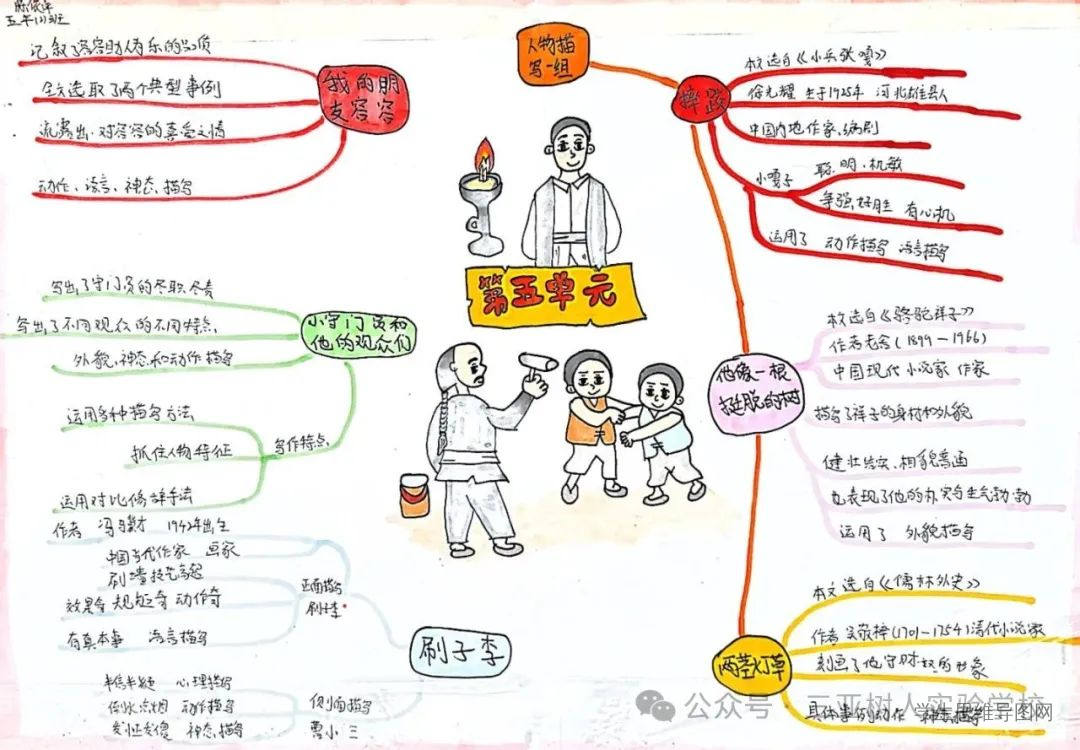 五年(2)班
记叙了容容助人为乐的品质
全文选取了两个典型事例
流露出对容容的喜爱之情
动作、语言、神态、描写
我的朋
友容容
人物描
写一组
摔跤
本文选自《小兵张嘎》
徐光耀 生于1925年 河北雄县人
中国内地作家、编剧
小嘎子
聪明、机敏
争强好胜 有心机
运用了 动作描写 语言描写
第五单元
写出了守门员的尽职尽责
写出了不同观众的不同特点
外貌、神态和动作描写
小守门员和
他的观众们
运用多种描写方法
抓住人物特征
运用对比修辞手法
写作特点
他像一根
挺脱的树
本文选自《骆驼祥子》
作者老舍(1899—1966)
中国现代小说家 作家
描写了祥子的身材和外貌
健壮结实、相貌普通
也表现了他的朴实与生气勃勃
运用了 外貌描写
作者 冯骥才 1942年出生
中国当代作家 画家
刷墙技艺高超
效果奇 规矩奇 动作奇
有真本事 语言描写
正面描写
刷子李
刷子李
半信半疑 心理描写
动作描写
神态、描写
侧面描写
曹小三
两茎灯草
本文选自《儒林外史》
作者 吴敬梓(1701—1754)清代小说家
刻画了他守财奴的形象
具体事例动作 神态描写
公众号 三亚树人实验学校
学生思维导图网